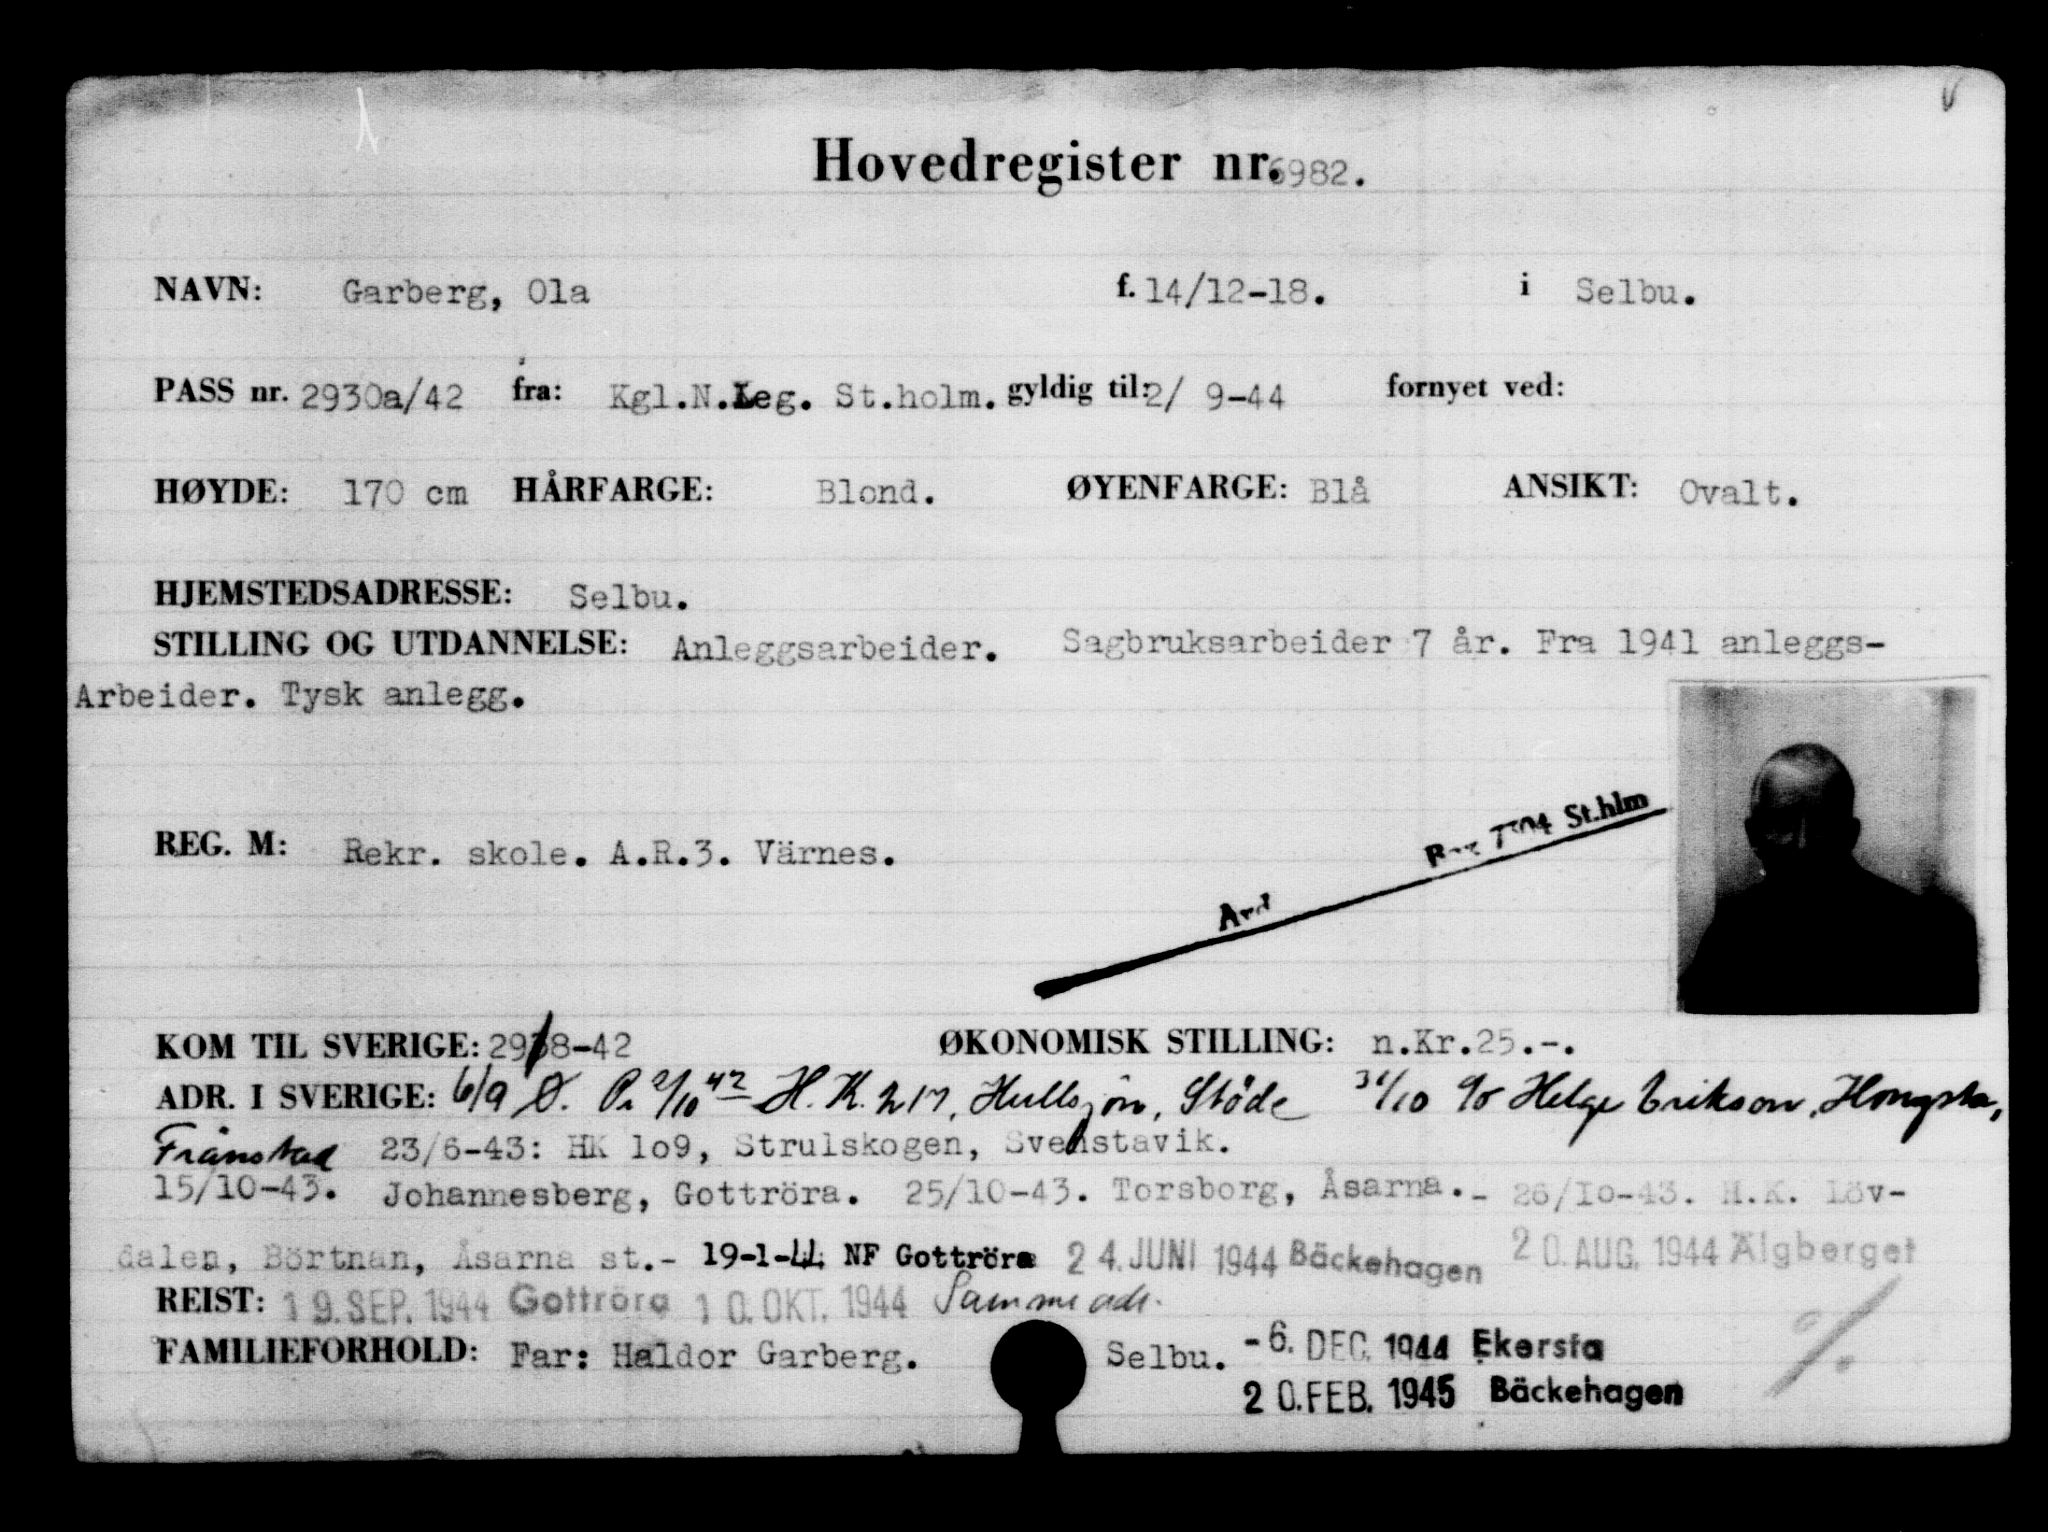 Hovedregister nr. 6982.
NAVN: Garberg, Ola f. 14/12-18. i Selbu.
PASS nr. 2930a/42 fra: Kgl.N.Leg. St.holm. gyldig til: 2/ 9-44 fornyet ved:
HØYDE: 170 cm HÅRFARGE: Blond. ØYENFARGE: Blå ANSIKT: Ovalt.
HJEMSTEDSADRESSE: Selbu.
STILLING OG UTDANNELSE: Anleggsarbeider. Sagbruksarbeider 7 år. Fra 1941 anleggs-
Arbeider. Tysk anlegg.
St.hlm
REG. M: Rekr. skole. A.R.3. Värnes.
KOM TIL SVERIGE: 29/8-42 ØKONOMISK STILLING: n.Kr.25.-.
ADR. I SVERIGE: 6/9 Ø. 2/10 42 H.K. 217, Hullsjön, Stöde 31/10 c/o Helge Erikson, Hongsta,
Frånstad 23/6-43: HK 1o9, Strulskogen, Svenstavik.
15/10-43. Johannesberg, Gottröra. 25/10-43. Torsborg, Åsarna.- 26/10-43. H.K. Löv-
dalen, Börtnan, Åsarna st.- 19-1-44 NF Gottröra 24. JUNI 1944 Bäckehagen 20. AUG. 1944 Älgberget
REIST: 19. SEP. 1944 Gottröra 10. OKT. 1944 Samme adr.
FAMILIEFORHOLD: Far: Haldor Garberg. Selbu. -6. DEC. 1944 Ekersta
20. FEB. 1945 Bäckehagen